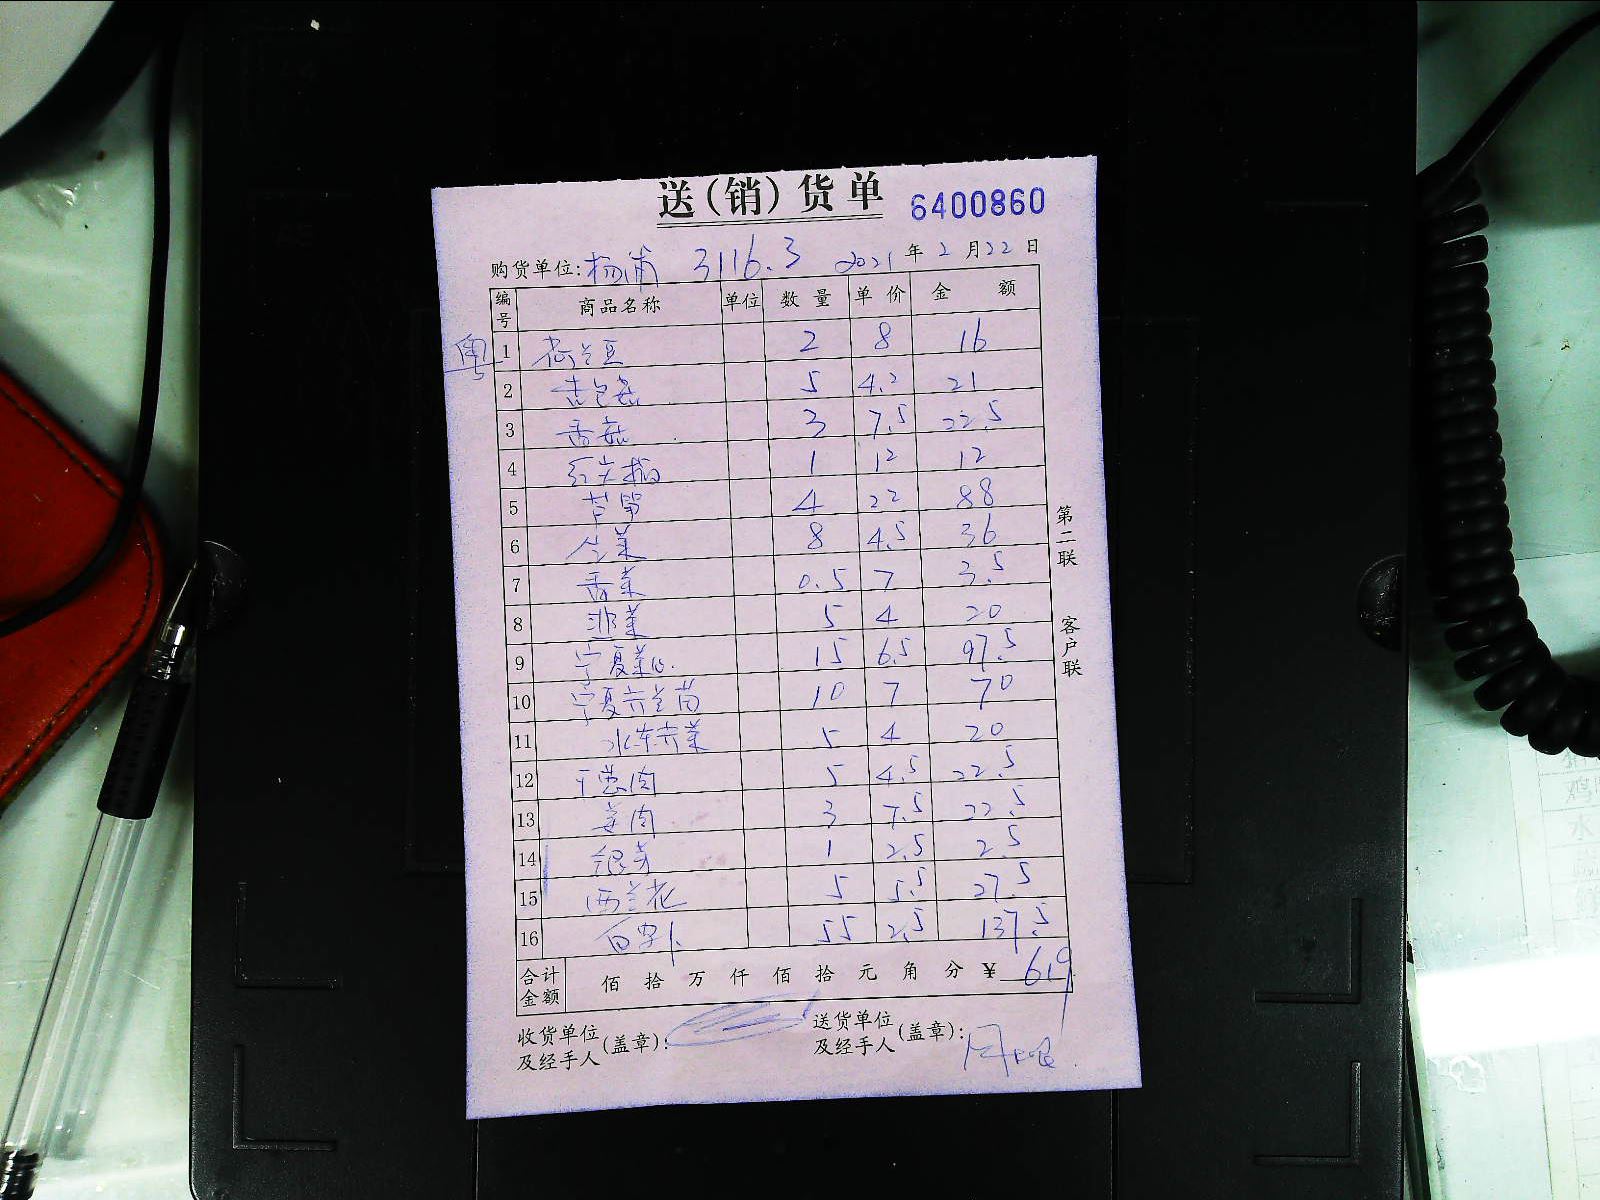 送(销)货单 6400860
购货单位:杨浦 3116.3 2021年2月22日
编号 商品名称 单位 数量 单价 金额
粤
1 荷兰豆 2 8 16
2 杏鲍菇 5 4.2 21
3 香菇 3 7.5 22.5
4 红尖椒 1 12 12
5 芦笋 4 22 88
6 生菜 8 4.5 36
7 香菜 0.5 7 3.5
8 韭菜 5 4 20
9 宁夏菜心 15 6.5 97.5
10 宁夏芥兰苗 10 7 70
11 水东芥菜 5 4 20
12 干葱肉 5 4.5 22.5
13 姜肉 3 7.5 22.5
14 银芽 1 2.5 2.5
15 西兰花 5 5.5 27.5
16 白萝卜 55 2.5 137.5
合计金额 佰拾万仟佰拾元角分 ¥ 619
收货单位及经手人(盖章):
送货单位及经手人(盖章):
第二联 客户联